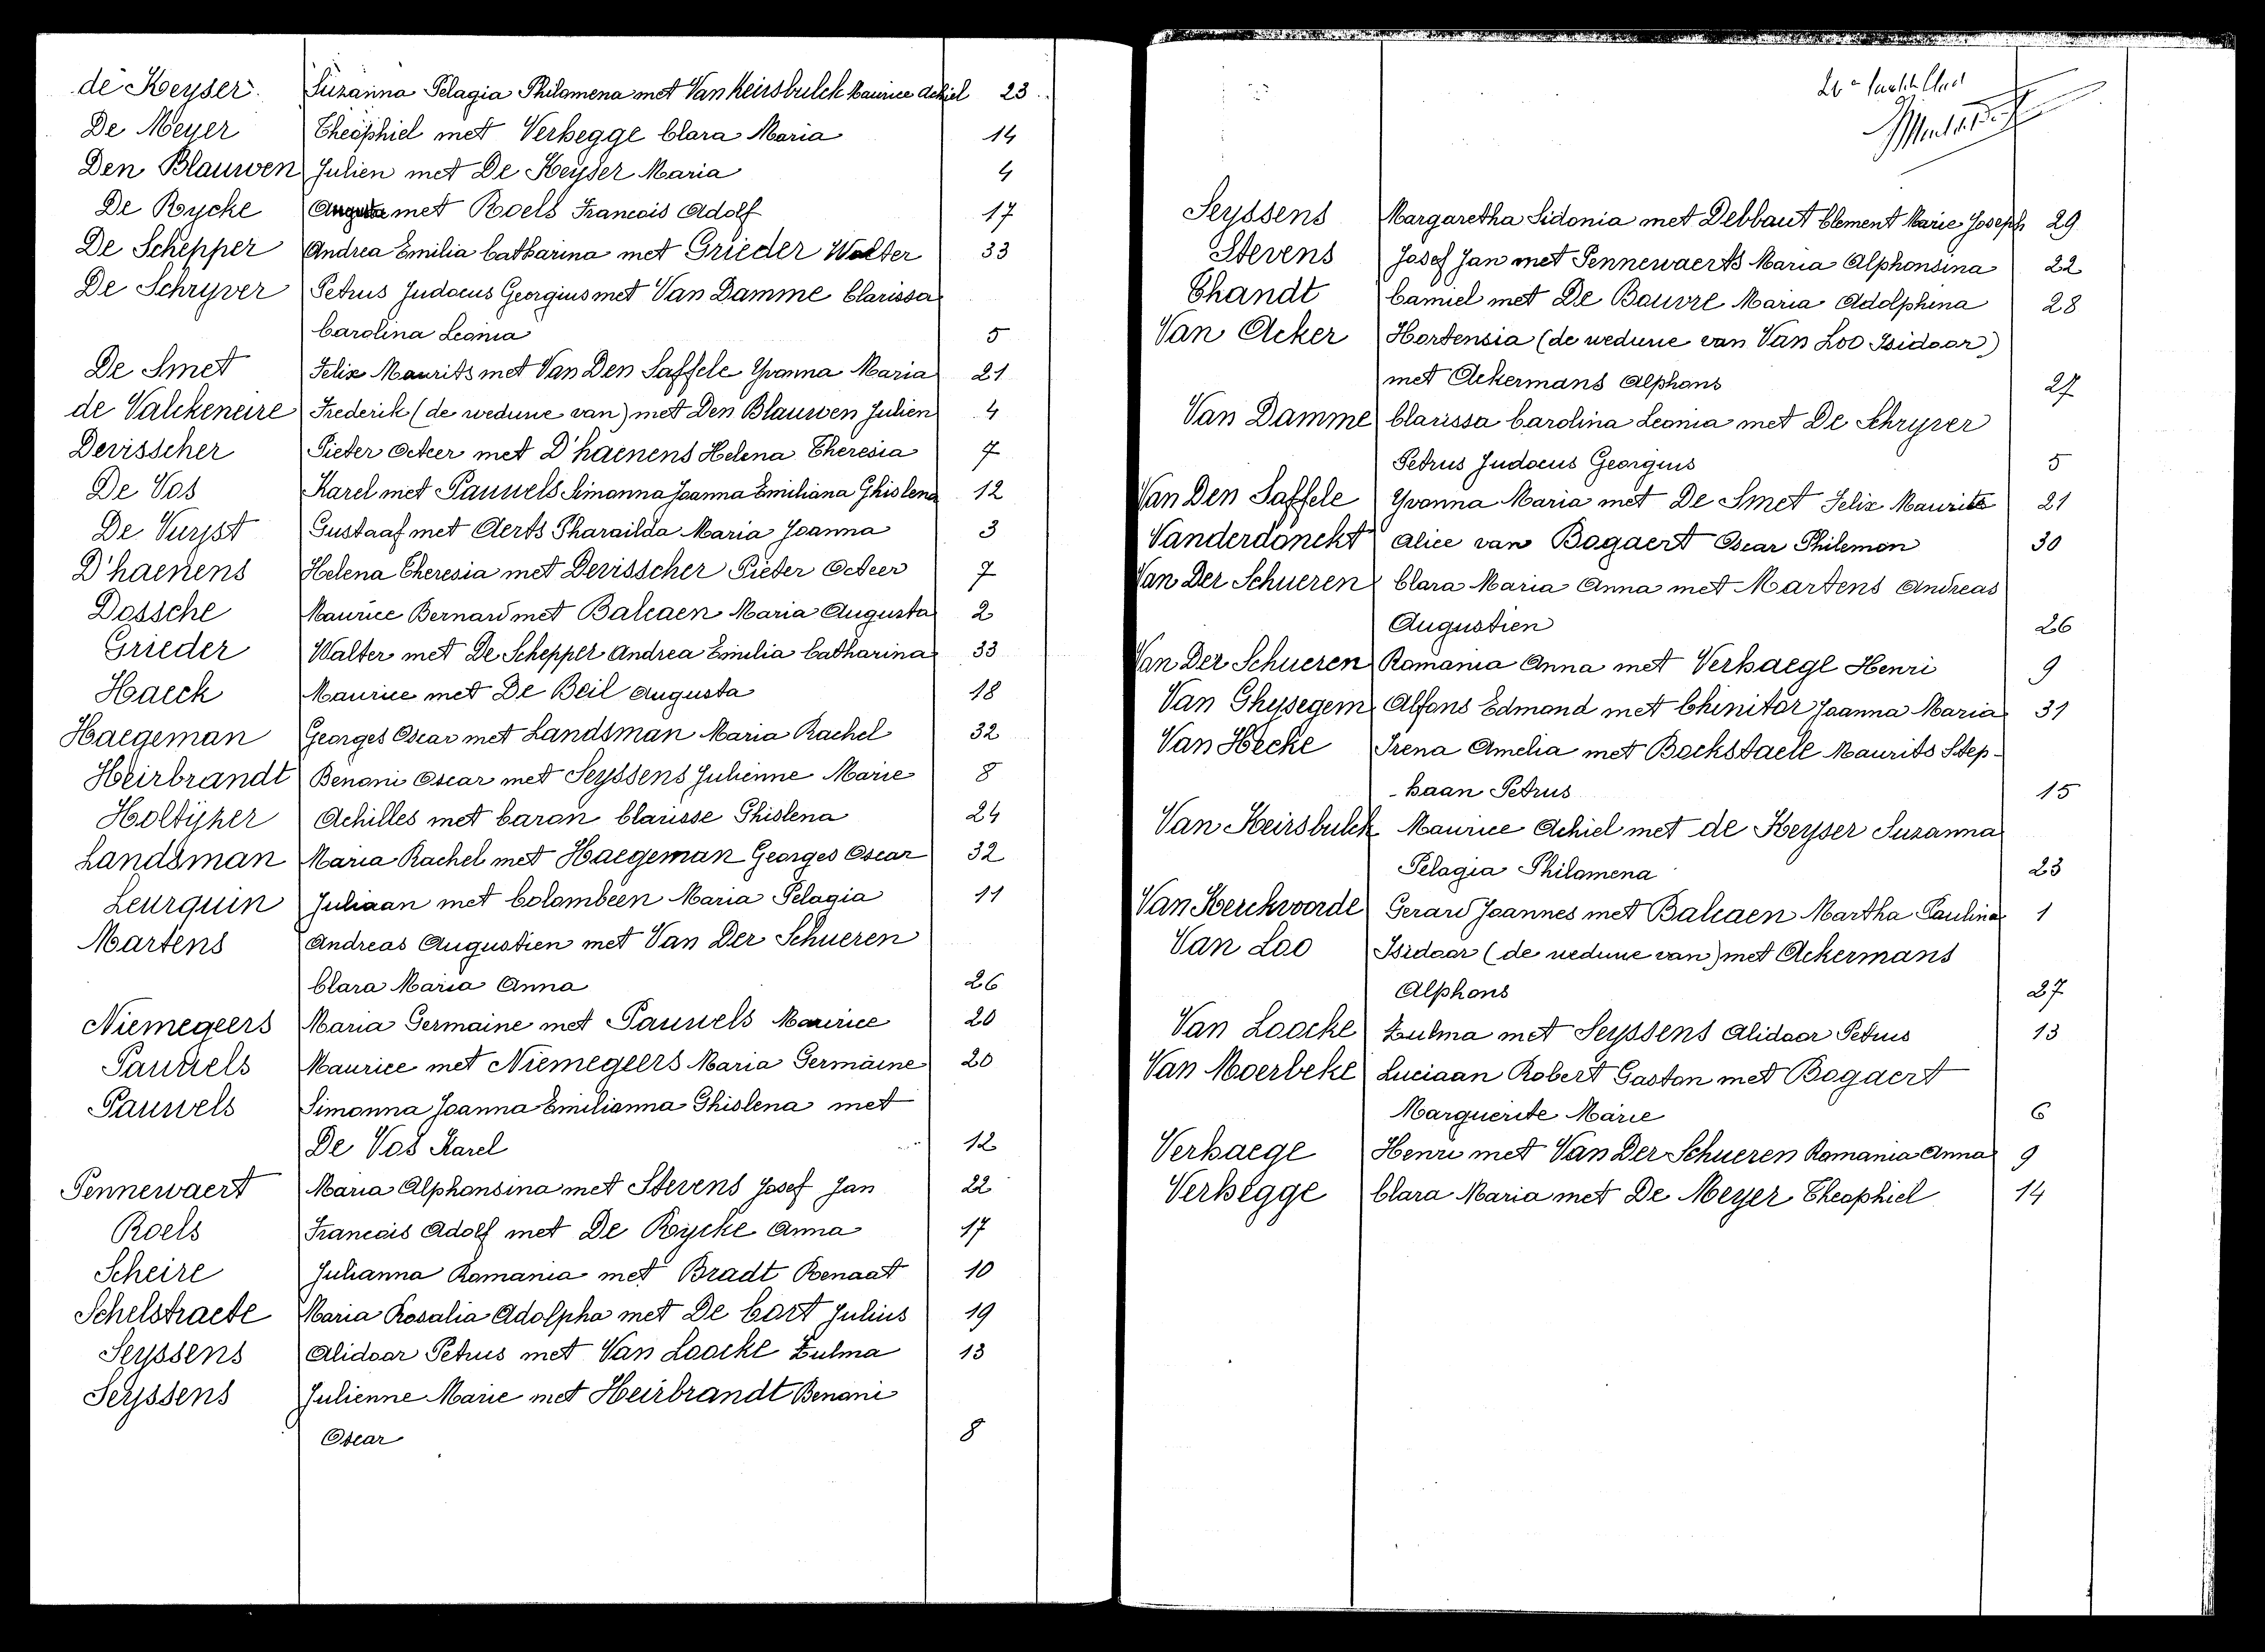 de Keyser Suzanna Pelagia Philomena met Van Keirsbulck Maurice Achiel 23
De Meyer Theophiel met Verhegge Clara Maria 14
Den Blauwen Julien met De Keyser Maria 4
De Rycke met Roels Francois Adolf 17
De Schepper Andrea Emilia Catharina met Grieder Walter 33
De Schryver Petrus Judocus Georgius met Van Damme Clarissa
Carolina Leonia 5
De Smet Felix Maurits met Van Den Saffele Yvonna Maria 21
de Valckeneire Frederik (de weduwe van) met Den Blauwen Julien 4
Devisscher Pieter Octeer met D'haenens Helena Theresia 7
De Vos Karel met Pauwels Simonna Joanna Emiliana Ghislena 12
De Vuyst Gustaaf met Aerts Pharaïlda Maria Joanna 3
D'haenens Helena Theresia met Devisscher Pieter Octeer 7
Dossche Maurice Bernard met Balcaen Maria Augusta 2
Grieder Walter met De Schepper Andrea Emilia Catharina 33
Haeck Maurice met De Beil Augusta 18
Haegeman Georges Oscar met Landsman Maria Rachel 32
Heirbrandt Benoni Oscar met Seyssens Julienne Marie 8
Holtyzer Achilles met Caron Clarisse Ghislena 24
Landsman Maria Rachel met Haegeman Georges Oscar 32
Leurquin Juliaan met Colombeen Maria Pelagia 11
Martens Andreas Augustien met Van Der Schueren
Clara Maria Anna 26
Niemegeers Maria Germaine met Pauwels Maurice 20
Pauwels Maurice met Niemegeers Maria Germaine 20
Pauwels Simonna Joanna Emilianna Ghislena met
De Vos Karel 12
Pennewaert Maria Alphonsina met Stevens Josef Jan 22
Roels Francois Adolf met De Rycke Anna 17
Scheire Julianna Romania met Bradt Renaat 10
Schelstraete Maria Rosalia Adolpha met De Cort Julius 19
Seyssens Alidoor Petrus met Van Loocke Zulma 13
Seyssens Julienne Marie met Heirbrandt Benoni
Oscar 8
Seyssens Margaretha Sidonia met Debbaut Clement Marie Joseph 29
Stevens Josef Jan met Pennewaerts Maria Alphonsina 22
Thandt Camiel met De Bouvre Maria Adolphina 28
Van Acker Hortensia (de weduwe van Van Loo Isidoor)
met Ackermans Alphons 27
Van Damme Clarissa Carolina Leonia met De Schryver
Petrus Judocus Georgius 5
Van Den Saffele Yvonna Maria met De Smet Felix Maurits 21
Vanderdonckt Alice van Bogaert Oscar Philemon 30
Van Der Schueren Clara Maria Anna met Martens Andreas
Augustien 26
Van Der Schueren Romania Anna met Verhaege Henri 9
Van Ghysegem Alfons Edmond met Chinitor Joanna Maria 31
Van Hecke Irena Amelia met Bockstaele Maurits Step-
-haan Petrus 15
Van Keirsbulck Maurice Achiel met de Keyser Suzanna
Pelagia Philomena 23
Van Kerckvoorde Gerard Joannes met Balcaen Martha Paulina 1
Van Loo Isidoor (de weduwe van) met Ackermans
Alphons 27
Van Loocke Zulma met Seyssens Alidoor Petrus 13
Van Moerbeke Luciaan Robert Gaston met Bogaert
Marguerite Marie 6
Verhaege Henri met Van Der Schueren Romania Anna 9
Verhegge Clara Maria met De Meyer Theophiel 14